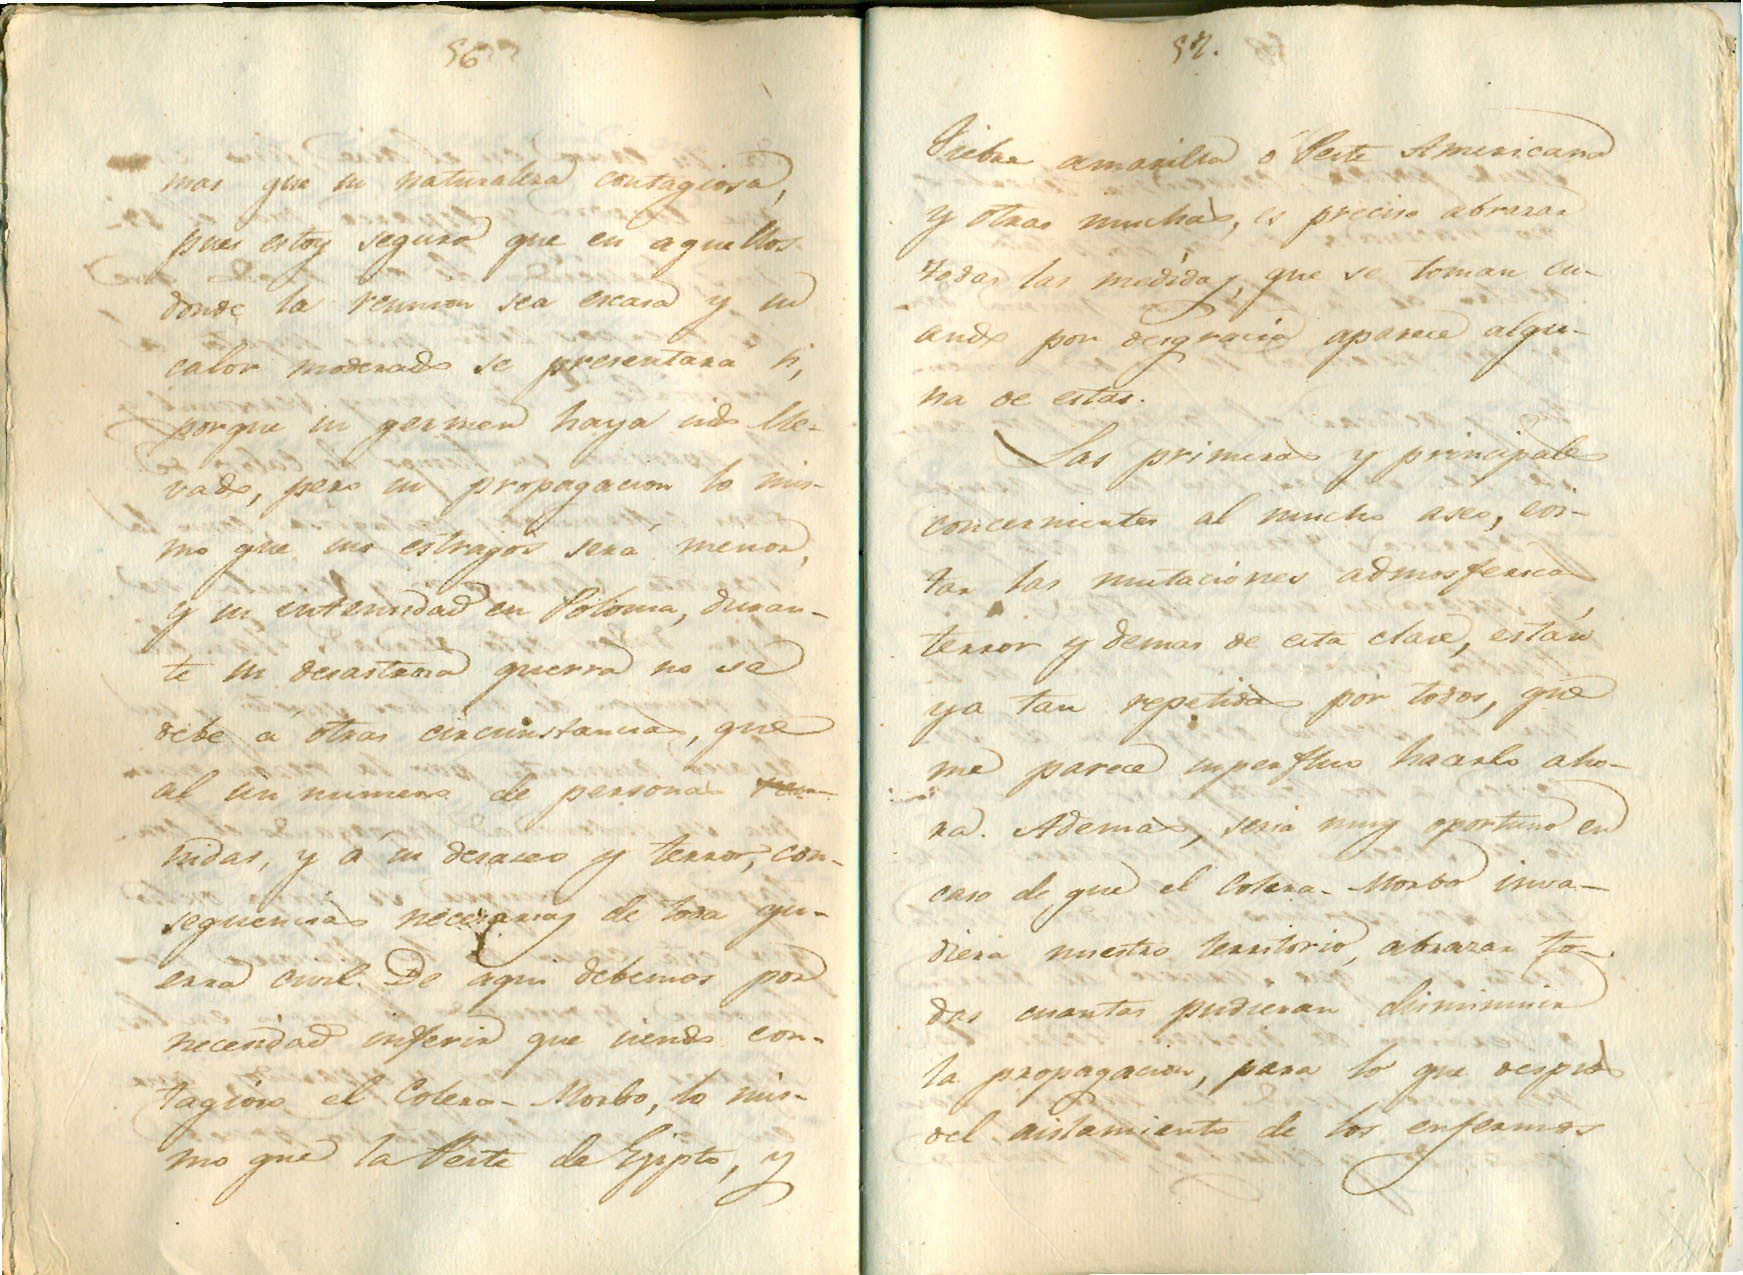 56
mas que su naturaleza contagiosa,
pues estoy seguro que en aquellos
donde la reunion sea escasa y su
calor moderado se presentará si,
porque su germen haya sido lle-
vado, pero su propagacion lo mis-
mo que sus estragos será menor,
y su intensidad en Polonia, duran-
te su desastrosa guerra no se
debe á otras circunstancias, que
al sin numero de personas reu-
nidas, y á su desaseo y terror, con-
sequencias necesarias de toda gu-
erra civil. De aqui debemos por
necesidad inferir que siendo con-
tagioso el Colera-Morbo, lo mis-
mo que la Peste de Egipto, y
57.
Fiebre amarilla ó Peste Americana
y otras muchas, es preciso abrazar
todas las medidas, que se toman cu-
ando por desgracia aparece algu-
na de estas.
Las primeras y principales
concernientes al mucho aseo, evi-
tar las mutaciones admosfericas,
terror y demas de esta clase, están
ya tan repetidas por todos, que
me parece superfluo hacerlo aho-
ra. Ademas, seria muy oportuno en
caso de que el Colera-Morbo inva-
diera nuestro territorio, abrazar to-
das cuantas pudieran disminuir
la propagacion, para lo que despues
del aislamiento de los enfermos